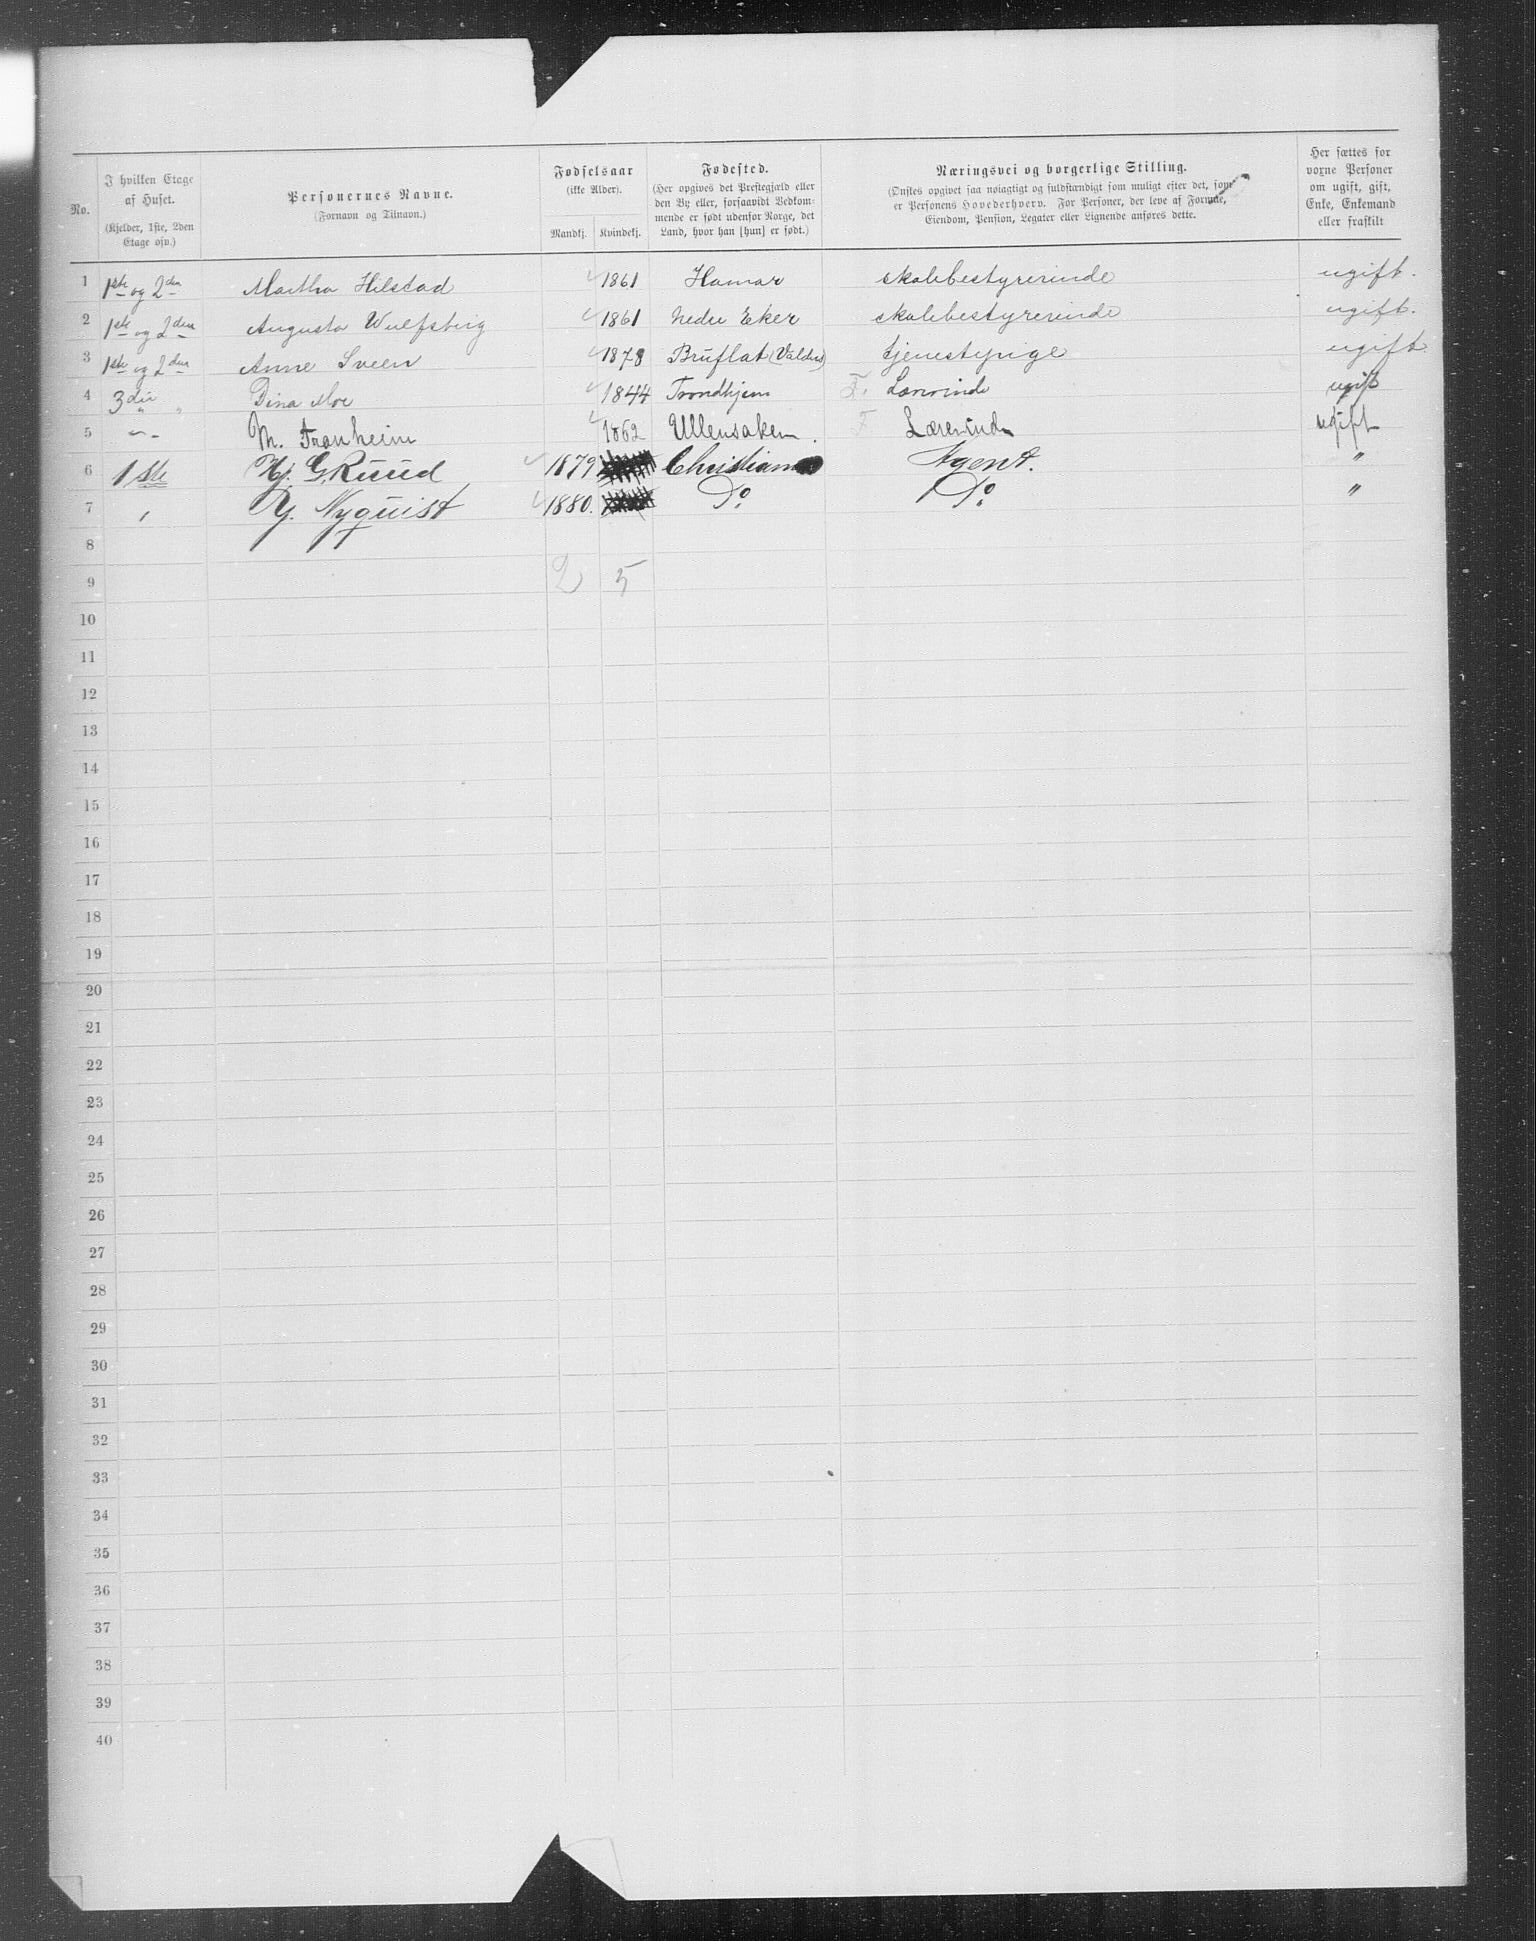 No.
I hvilken Etage af Huset.
(Kjelder, 1ste, 2den Etage osv.)
Personernes Navne.
(Fornavn og Tilnavn.)
Fødselsaar
(ikke Alder).
Mandkj. Kvindekj.
Fødested.
(Her opgives det Præstegjæld eller den By eller, forsaavidt Vedkommende er født udenfor Norge, det Land, hvor han [hun] er født.)
Næringsvei og borgerlige Stilling.
(Ønskes opgivet saa nøiagtigt og fuldstændigt som muligt efter det, som er Personens Hovederhverv. For Personer, der leve af Formue, Eiendom, Pension, Legater eller Lignende anføres dette.
Her sættes for vorne Personer om ugift, gift, Enke, Enkemand eller fraskilt
1 1ste og 2den Martha Hilstad 1861 Hamar skolebestyrerinde ugift.
2 1ste og 2den Augusta Wulfsberg 1861 Nedre Eker skolebestyrerinde ugift.
3 1ste og 2den Anne Sveen 1878 Bruflat (Valdres) tjenestepige ugift
4 3die " " Dina Moe 1844 Trondhjem F. Lærerinde ugift
5 -"- M. Tronheim 1862 Ullensaker. F Lærerinde ugift
6 1ste Hj. G. Ruud 1879 Christiania Agent. "
7 " Y. Nyquist 1880. Do. Do. "
8
2 5
9
10
11
12
13
14
15
16
17
18
19
20
21
22
23
24
25
26
27
28
29
30
31
32
33
34
35
36
37
38
39
40